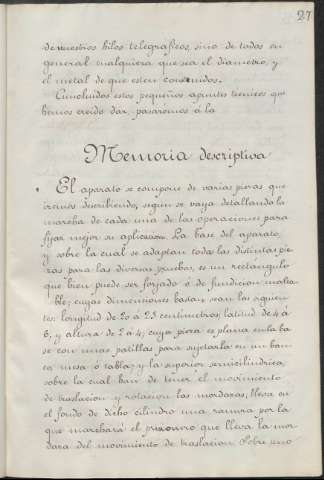 27
de nuestros hilos telegraficos, sino de todos en
general cualquiera que sea el diametro, y
el metal de que esten construidos.
Concluidos estos pequeños apuntes tecnicos que
hemos creido dar, pasaremos á la
Memoria descriptiva
El aparato se compone de varias piezas que
iremos describiendo, segun se vaya detallando la
marcha de cada una de las operaciones para
fijar mejor su aplicacion. La base del aparato,
y sobre la cual se adaptan todas las distintas pie
zas para las diversas pruebas, es un rectángulo
que bien puede ser forjado ó de fundicion malea-
ble; cuyas dimensiones bastan sean las siguien
tes: longitud de 20 á 25 centimetros; latitud de 4 á
6, y altura de 2 á 4; cuya pieza es plana en la ba
se con unas patillas para sujetarla en un ban
co, mesa, ó tabla; y la superior semicilindrica,
sobre la cual han de tener el movimiento
de traslacion y rotacion las mordazas; lleva en
el fondo de dicho cilindro una ranura por la
que marchará el prisionero que lleva la mor
daza del movimiento de traslacion. Sobre uno